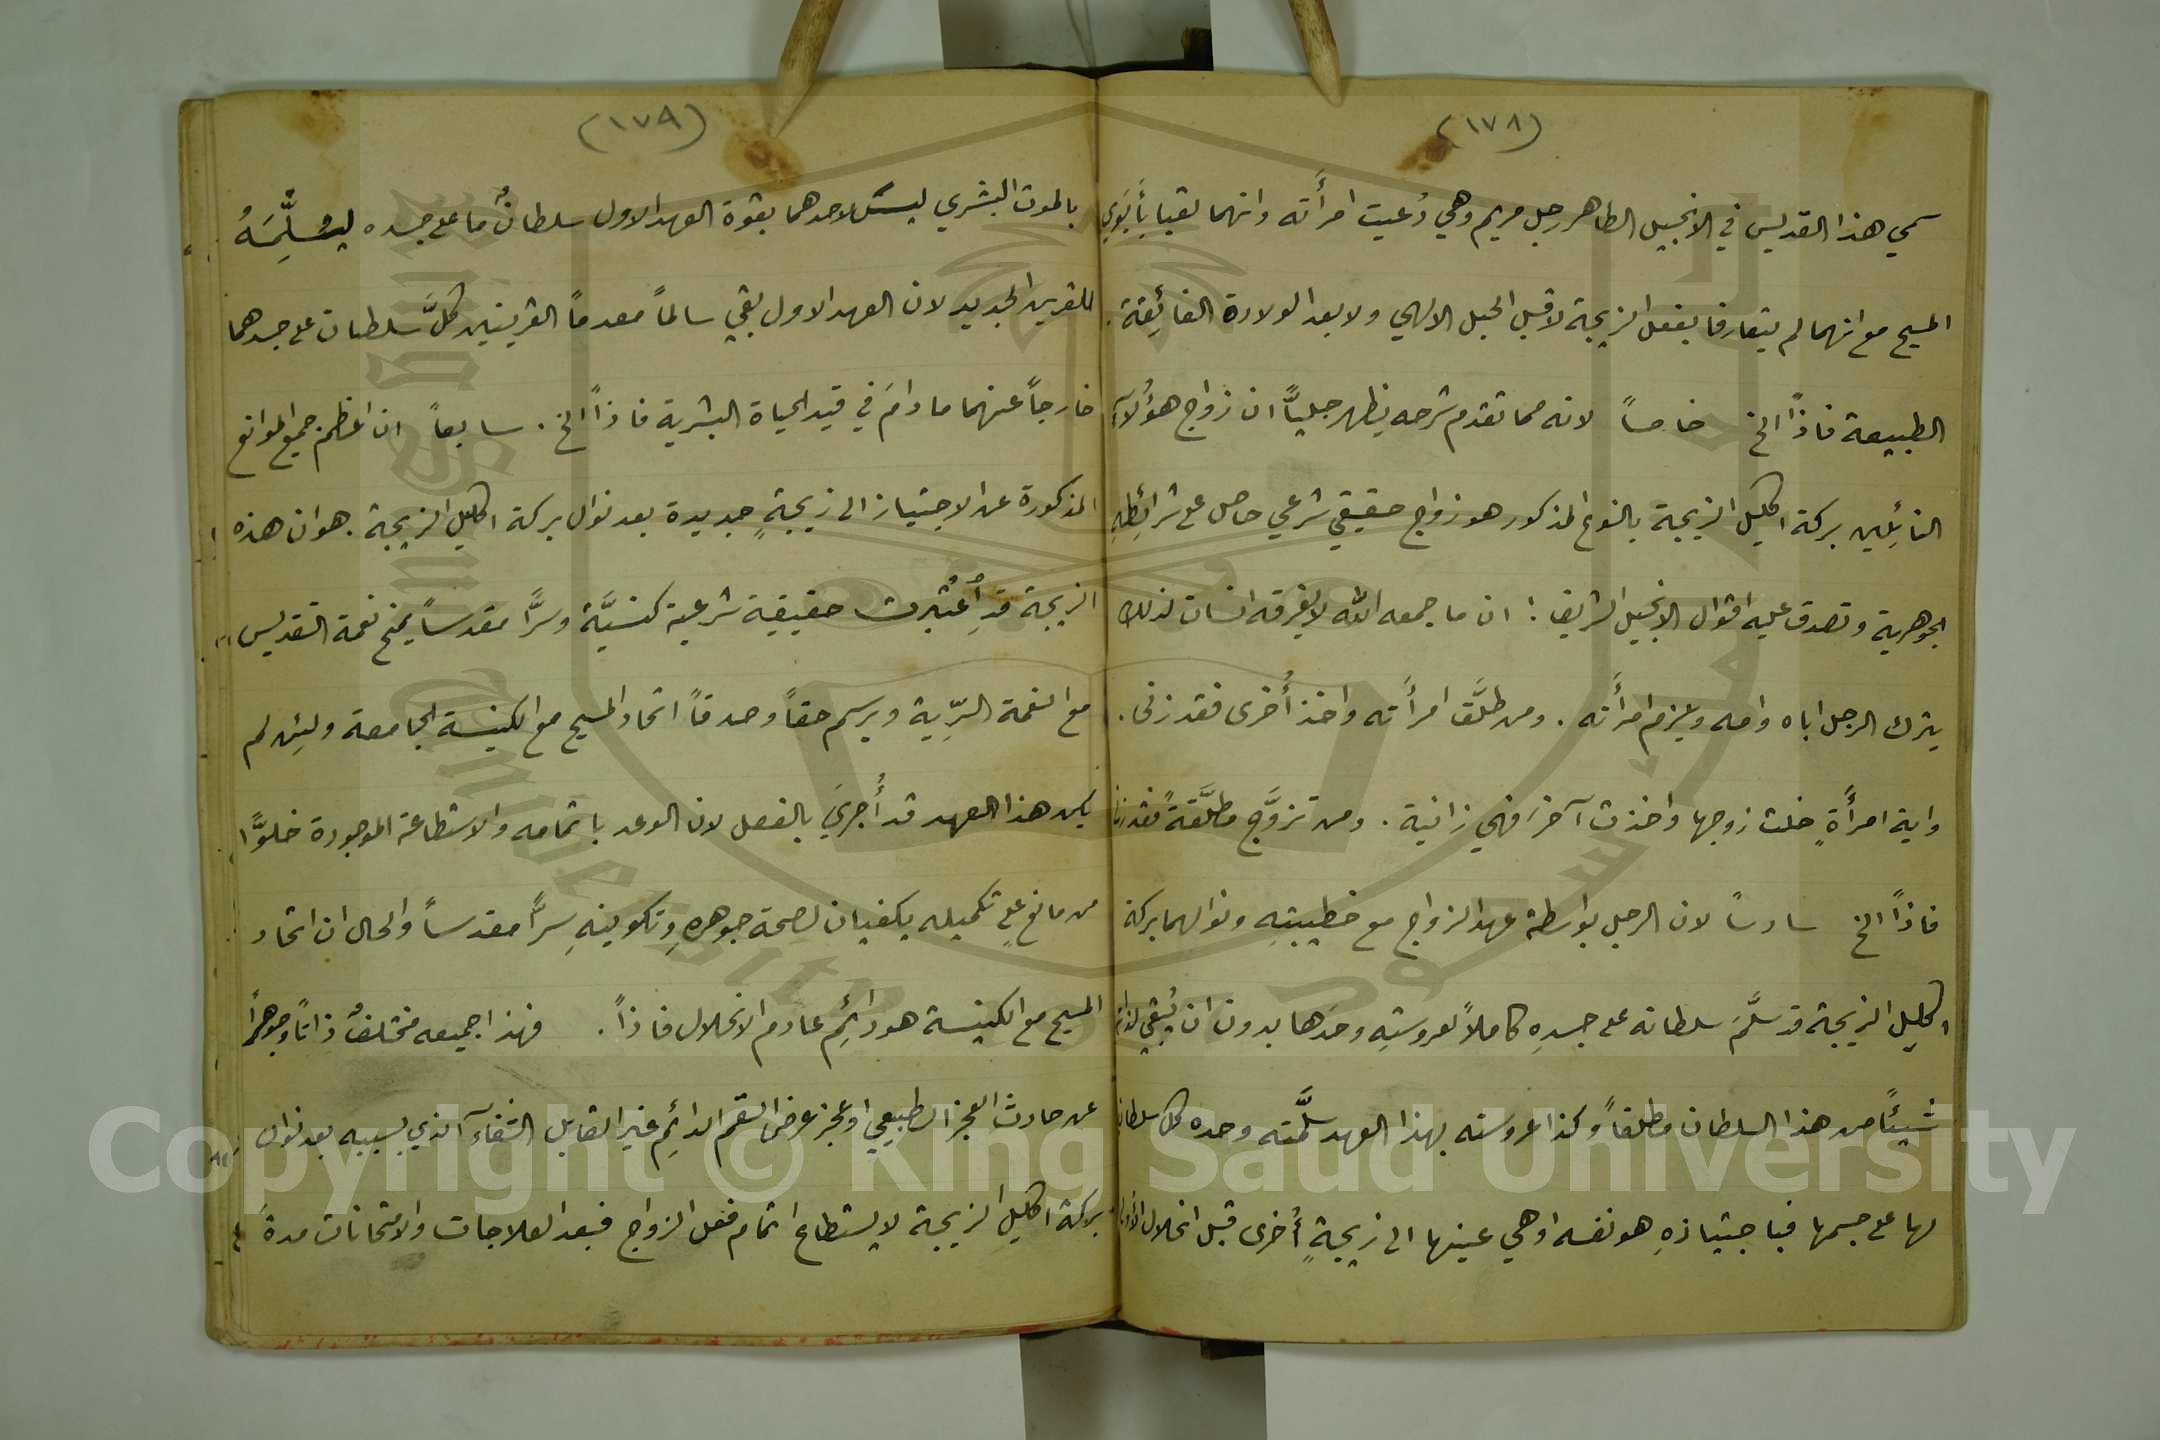 (١٧٨)
سمي هذا القديس في الانجيل الطاهر رجل مريم وهي دُعيت امرأَته وانهما لقبا بأَبَوَي
المسيح مع انهما لم يتعارفا بفعل الزيجة لا قبل الحبل الالهي ولا بعد الولادة الفائِقة
الطبيعة فاذاً الخ خامساً لانه مما تقدم شرحه يظهر جليًّا ان زواج هؤُلآء
النائِلين بركة اكليل الزيجة بالنوع المذكور هو زواج حقيقي شرعي حاصل على شرائِطِهِ
الجوهرية وتصدق عليه اقوال الانجيل الشريف : ان ما جمعه الله لا يفرقه انسان لذلك
يترك الرجل اباه وامه ويلزم امرأَته . ومن طلَّق امرأَته واخذ أُخرى فقد زنى .
واية امرأَةٍ خلت زوجها واخذت آخرَ فهي زانية . ومن تزوَّج مطلَّقةً فقد زنا
فاذاً الخ سادساً لان الرجل بواسطة عهد الزواج مع خطيبتِهِ ونوالهما بركة
اكليل الزيجة قد سلَّمَ سلطانه على جسدِهِ كاملاً لعروستِهِ وحدَها بدون ان يُبقي لذاته
شيئًا من هذا السلطان مطلقاً وكذا عروسته بهذا العهد سلَّمته وحده كل سلطان
لها على جسمها فباجتيازهِ هو نفسه او هي عينها الى زيجةٍ أُخرى قبل انحلال الأولى
(١٧٩)
بالموت البشري ليس لاحدهما بقوة العهد الاول سلطانٌ ما على جسده ليسَلِّمَهُ
للقرين الجديد لان العهد الاول بقي سالماً معدماً القرينين كلَّ سلطان على جسدهما
خارجاً عنهما ما دامَ في قيد الحياة البشرية فاذاً الخ . سابعاً ان اعظم جميع الموانع
المذكورة عن الاجتياز الى زيجةٍ جديدة بعد نوال بركة اكليل الزيجة . هو ان هذه
الزيجة قدِ أُعتُبرت حقيقية شرعية كنسيَّة وسرًّا مقدساً يمنح نعمة التقديس
مع النعمة السِّرِّية ويرسم حقاً وصدقاً اتحاد المسيح مع الكنيسة الجامعة ولئِن لم
يكن هذا العهد قد أُجريَ بالفعل لان الوعد باتمامه والاستطاعة الموجودة خلوًّا
من مانع على تكميله يكفيان لصحة جوهرهِ وتكوينهِ سرًّا مقدساً والحال ان اتحاد
المسيح مع الكنيسة هو دائِم عادم الانحلال فاذاً . فهذا جميعه مختلفٌ ذاتاً وجوهراً
عن حادث العجز الطبيعي او عجز عرض السقم الدائِم غير القابل الشفآء الذي بسببه بعد نوال
بركة اكليل الزيجة لا يستطاع اتمام فعل الزواج فبعد العلاجات والامتحانات مدة